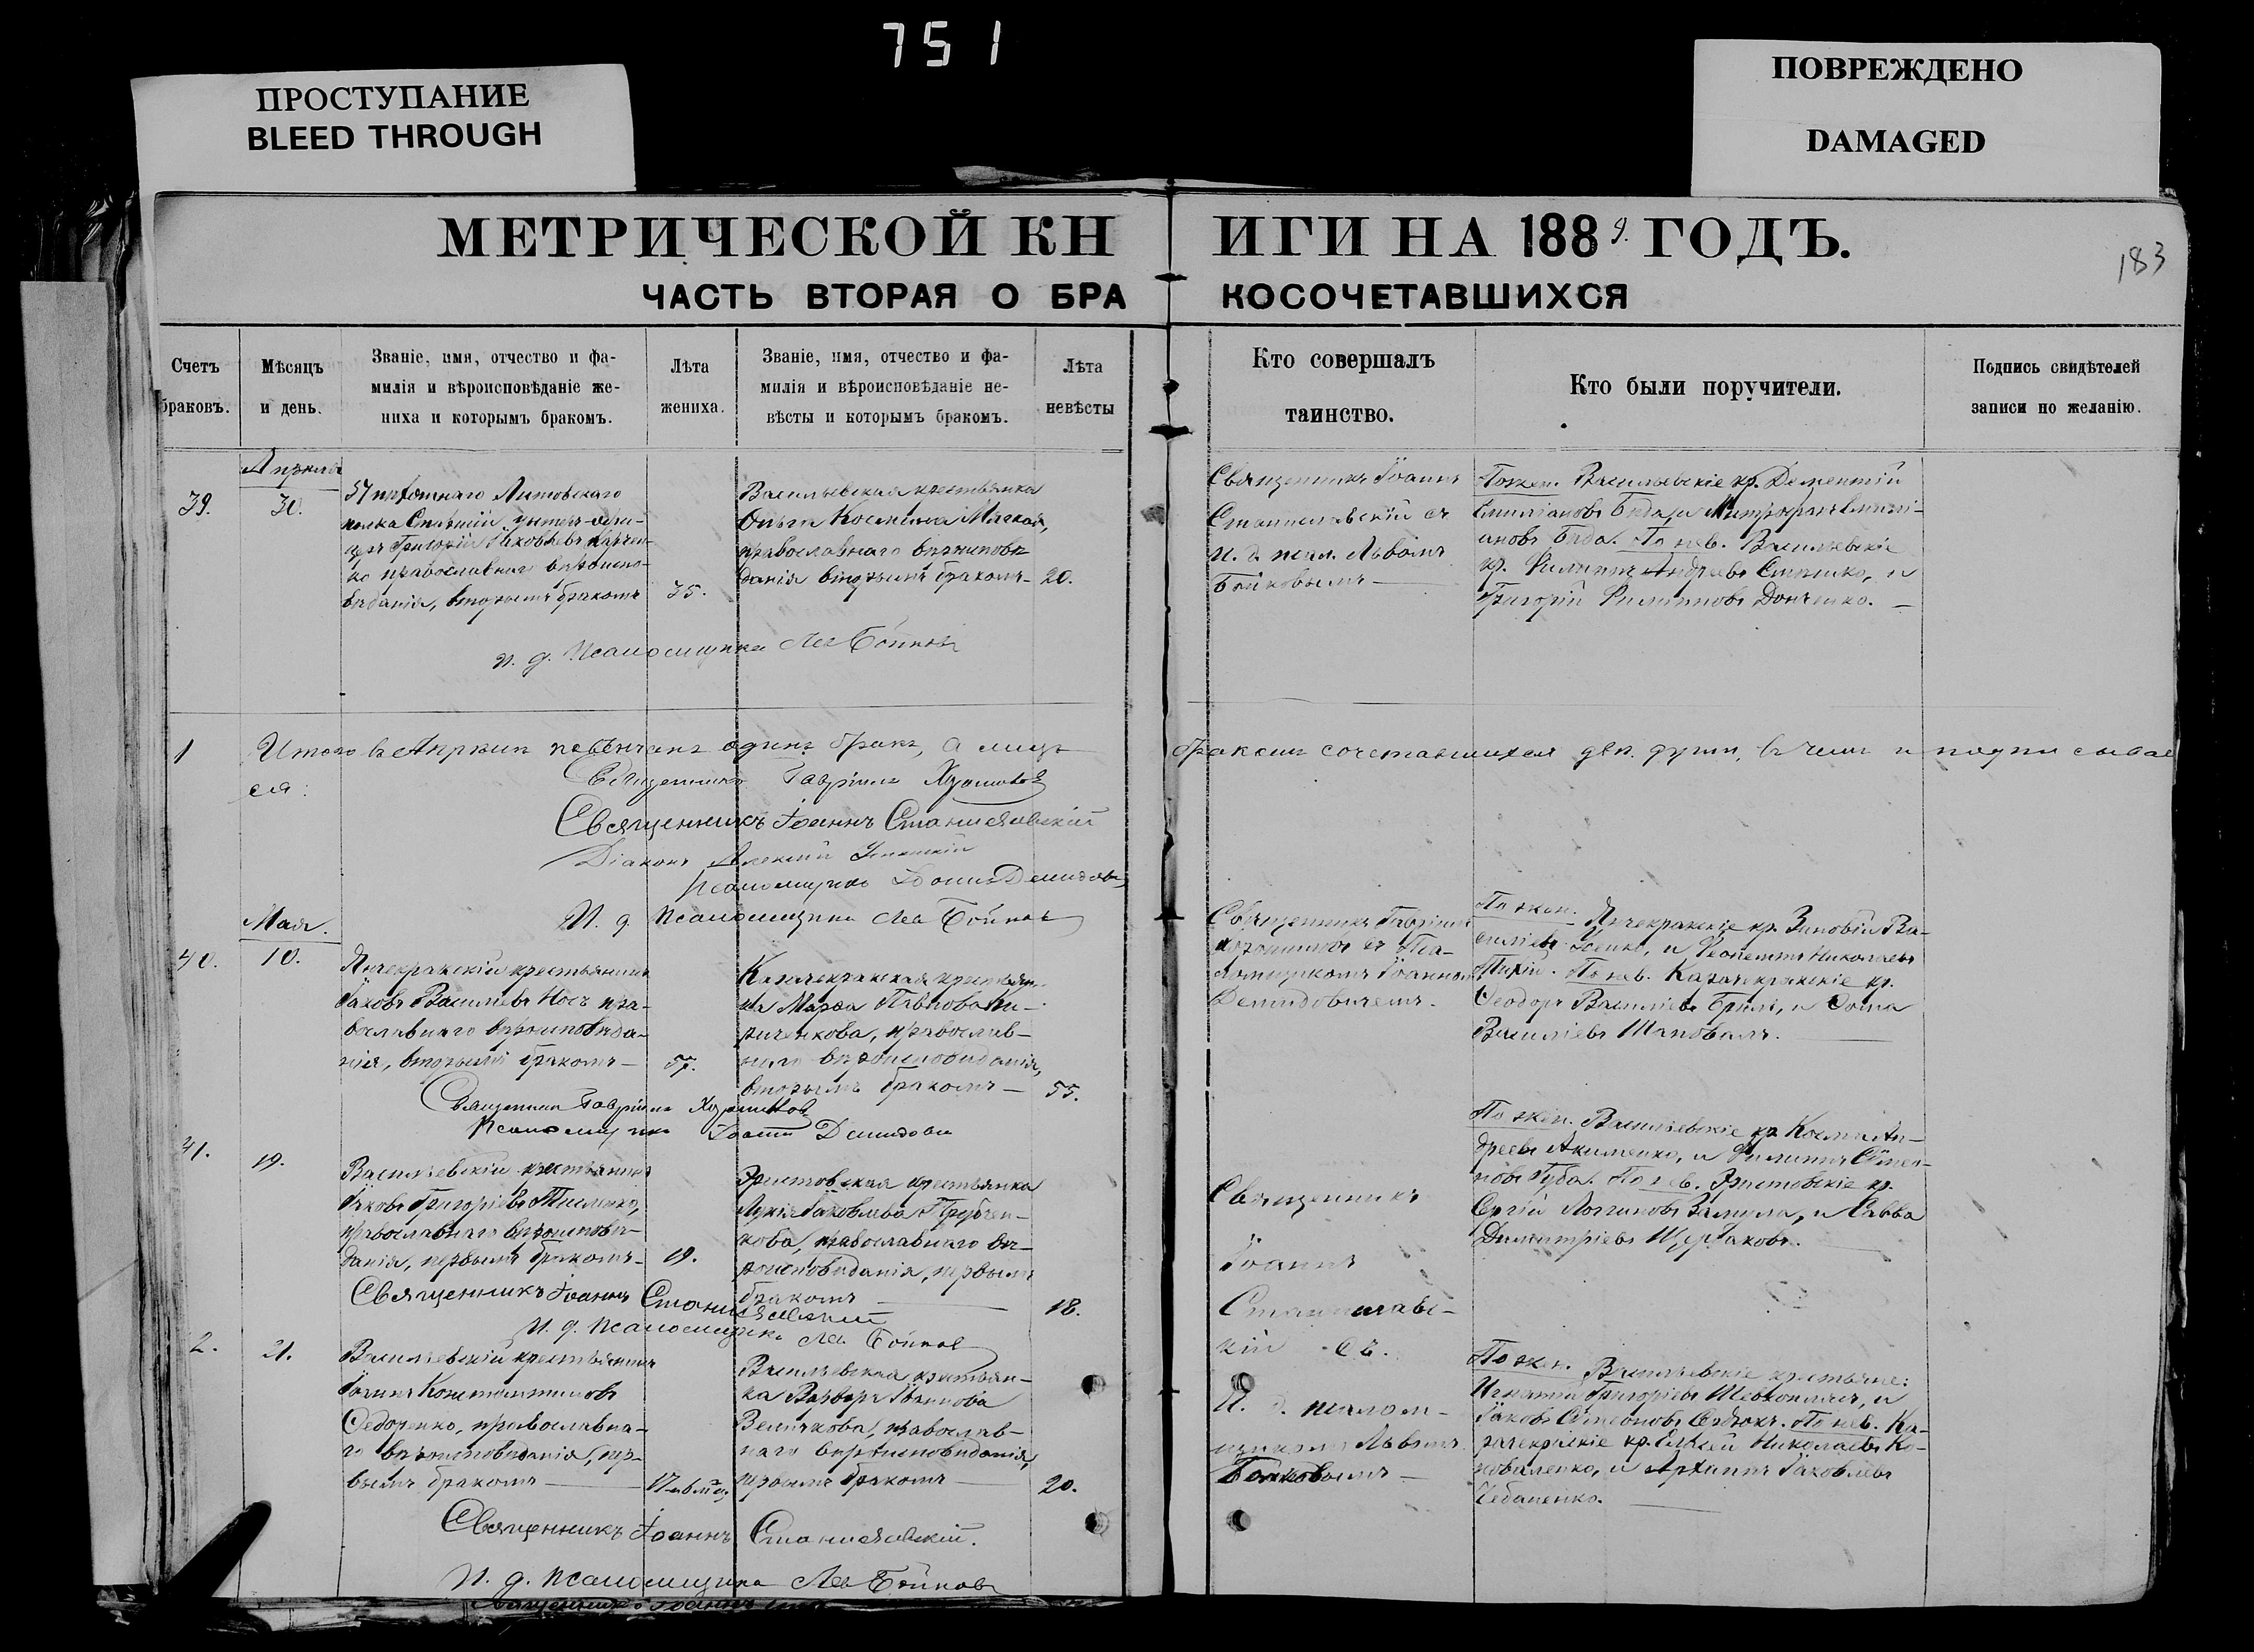 751
ПРОСТУПАНИЕ
BLEED THROUGH
ПОВРЕЖДЕНО
DAMAGED
МЕТРИЧЕСКОЙ КНИГИ НА 1889. ГОДЪ.
183
ЧАСТЬ ВТОРАЯ О БРАКОСОЧЕТАВШИХСЯ
Счетъ
браковъ.
Мѣсяцъ
и день.
Званіе, имя, отчество и фа-
милія и вѣроисповѣданіе же-
ниха и которымъ бракомъ.
Лѣта
жениха.
Званіе, имя, отчество и фа-
милія и вѣроисповѣданіе не-
вѣсты и которымъ бракомъ.
Лѣта
невѣсты
Кто совершалъ
таинство.
Кто были поручители.
Подпись свидѣтелей
записи по желанію.
Апрѣль
39.
30.
57 пѣхотнаго Литовскаго
полка унтеръ-офи-
церъ Григорій
православнаго вѣроиспо-
вѣданія, вторымъ бракомъ
35.
Васильевская крестьянка
Ольга Космина
православнаго вѣроисповѣ
данія вторымъ бракомъ-
20.
Священникъ Іоаннъ
Станиславскій съ
и. д. псал. Львомъ
Бойковымъ —
По жен. Васильевскіе кр. Дементій
Емиліановъ Бѣда, и Митрофанъ Емилі-
ановъ Бѣда. По нев. Васильевскіе
кр. Филиппъ Андреевъ и
Григорій Филипповъ Донченко. —
и. д. Псаломщика Левъ Бойковъ
1
Итого въ Апрѣлѣ повѣнчанъ одинъ бракъ, а лицъ бракомъ сочетавшихся двѣ души, въ чемъ и подписывае
ся:
Священникъ Гавріилъ
Священникъ Іоаннъ Станиславскій
Діаконъ Алексій
Псаломщикъ Іоаннъ Демидовъ
И. д. Псаломщика Левъ Бойковъ
Мая.
40.
10.
крестьянинъ
Іаковъ Васильевъ Носъ пра-
вославнаго вѣроисповѣда-
нія, вторымъ бракомъ —
57.
крестьян-
ка Марѳа Павлова Ки-
риченкова, православ-
наго вѣроисповѣданія,
вторымъ бракомъ —
55.
Священникъ Гавріилъ
съ Пса-
ломщикомъ Іоанномъ
Демидовичемъ.
По жен. кр. Зиновій Ва-
сильевъ и Николаевъ
По нев. кр.
Ѳеодоръ Васильевъ и Ѳома
Васильевъ Шаповалъ.
Священникъ Гавріилъ
Псаломщикъ Іоаннъ Демидовъ
41.
19.
Васильевскій крестьянинъ
Іаковъ Григорьевъ
православнаго вѣроисповѣ-
данія, первымъ бракомъ-
19.
крестьянка
Лукія Іаковлева Трубчен-
кова, православнаго вѣ-
роисповѣданія, первымъ
бракомъ —
18.
Священникъ
Іоаннъ
Станиславс-
кій съ.
И. д. псалом-
щикомъ Львомъ
Бойковымъ —
По жен. Васильевскіе кр. Косма Ан-
дреевъ Акименко, и Филиппъ
Губа. По нев. кр.
Сергій и Савва
Димитріевъ Щербаковъ.
Священникъ Іоаннъ Станиславскій
И. д. псаломщика Левъ Бойковъ
2.
21.
Васильевскій крестьянинъ
Іоаннъ Константиновъ
Ѳедоренко, православна-
го вѣроисповѣданія, пер-
вымъ бракомъ —
Васильевская крестьян-
ка Варвара Іоаннова
православ-
наго вѣроисповѣданія,
первымъ бракомъ —
20.
По жен. Васильевскіе крестьяне:
Игнатій Григорьевъ и
Іаковъ По нев. Ка-
кр. Николаевъ Ко-
коваленко, и Архиппъ Іаковлевъ
Чебаненко.
Священникъ Іоаннъ Станиславскій.
И. д. псаломщика Левъ Бойковъ